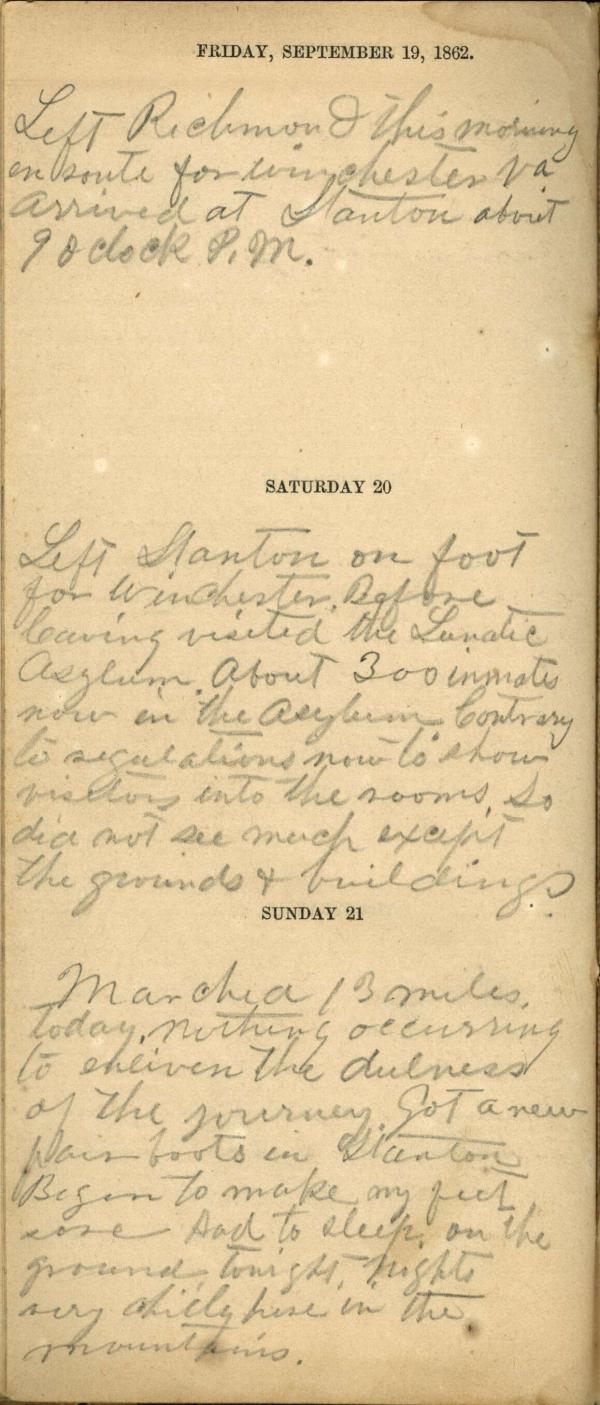 FRIDAY, SEPTEMBER 19, 1862.
Left Richmond this morning
en route for Winchester Va
Arrived at Stanton about
9 o clock P.M.
SATURDAY 20
Left Stanton on foot
for Winchester. Before
leaving visited the Lunatic
Asylum. About 300 inmates
now in the Asylum. Contrary
to regulations now to show
visitors into the rooms, So
did not see much except
the grounds & buildings.
SUNDAY 21
Marched 13 miles,
today, nothing occurring
to enliven the dulness
of the journey. Got a new
pair boots in Stanton
Begin to make my feet
sore Had to sleep on the
ground, tonight, nights
very chilly here in the
mountains.